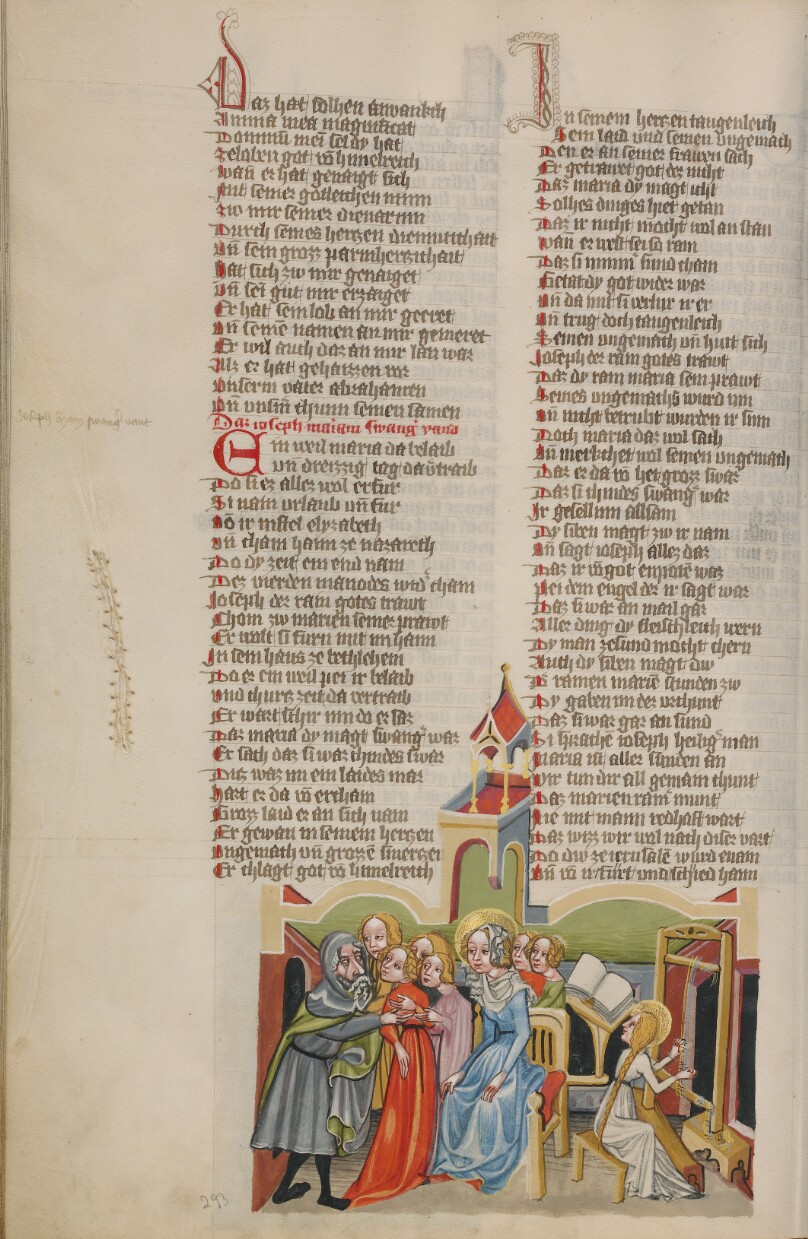 Daz hat solhen anwankch
Anima mea magnificat
Dominū mei sel dy hat
Ze loben got võ himelreich
Wañ er hat genaigt sich
Mit seiner götleichen minn
Zw mir seiner dienarinn
Durch seines herzen diemutichait
Vñ sein grozz parmherzichait
Hat sich zw mir genaiget
Vñ sei gut mir erzaiget
Er hat sein lob an mir geeret
Vñ seinē namen an mir gemeret
Er wil auch daz an mir lan war
Alz er hat gehaizzen vor
Vnserm vater abrahamen
Vñ vnsm̄ chunn seinen samen
Daz ioseph mariam swang vand
Ein weil maria da belaib
vñ dreizzig tag da vertraib
Do si ez allez wol erfur
Si nam vrlaub vñ fur
Võ ir mṡtel elyzabeth
Vñ cham haim ze nazareth
Do dy zeit ein end nam
Dez vierden manodes vnd cham
Joseph der rain gotes trawt
Chom zw marien seiner prawt
Er wolt si furn mit im haim
In sein haus ze bethlehem
Do er ein weil pei ir belaib
vnd churz zeit da vertraib
Er wart schir inn do er saz
Daz maria dy magt swang war
Er sach daz si waz chindes swar
Ditz waz im ein laides mar
Hart er da võ ercham
Grozz laid er an sich nam
Er gewan in seinem herzen
Vngemach vñ grozzē smerzen
Er chlagt got võ himelreich
In seinem herzen taugenleich
Sein laid vnd seinen vngemach
Den er an seiner frawen sach
Er getrawet got der nicht
Daz maria dy magt icht
Solhes dinges hiet getan
Daz ir nicht mocht wol an stan
Wañ er west sei so rain
Daz si nimm̄ sund chain
Getat dy got wider war
Vñ da mit si verlur ir er
Vñ trug doch taugenleich
Seinen vngemach vñ huit sich
Joseph der rain gotes trawt
Daz dy rain maria sein prawt
Seines vngemachs wurd inn
Vñ nicht betrubt wurden ir sinn
Doch maria daz wol sach
Vñ merkchet wol seinen vngemach
Daz er da võ het grozz swar
Daz si chindes swang war
Ir gesellinn allsam
Dy siben magt zw ir nam
Vñ sagt ioseph allez daz
Daz ir võ got enpotē waz
Pei dem engel der ir sagt war
Daz si war an mail gar
Aller ding dy fleischleich wern
Dy man zesund mocht chern
Auch dy siben magt dw
Dy gaben im der vrchunt
Daz si war gar an sund
Si sprachē ioseph heilig man
Maria ist aller sunden an
Wir tun dir all gemain chunt
Daz marien rain munt
Nie mit mann redhaft wart
Daz wizz wir wol nach diser vart
Do dw ze ierusalē wurd enain
Vñ võ ir fürt vnd schied haim
293